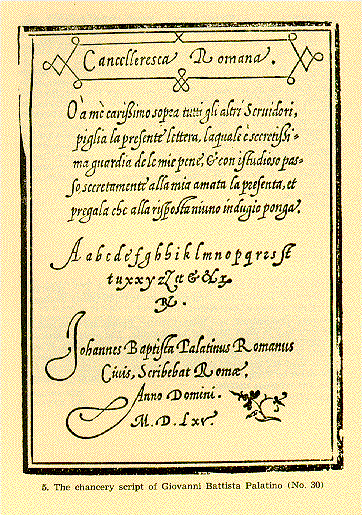 Cancelleresca Romana.
O' a me carissimo sopra tutti gli altri Seruidori,
piglia la presente lettera, laquale è secretissi-
ma guardia de le mie pene, & con istudioso pas-
so secretamente alla mia amata la presenta, et
pregala che alla risposta niuno indugio ponga.
A a b c d e f g h b i k l m n o p q r s s st
t u x x y z et & &
Johannes Baptista Palatinus Romanus
Ciuis, Scribebat Romæ,
Anno Domini.
M. D. Lxv.
5. The chancery script of Giovanni Battista Palatino (No. 30)